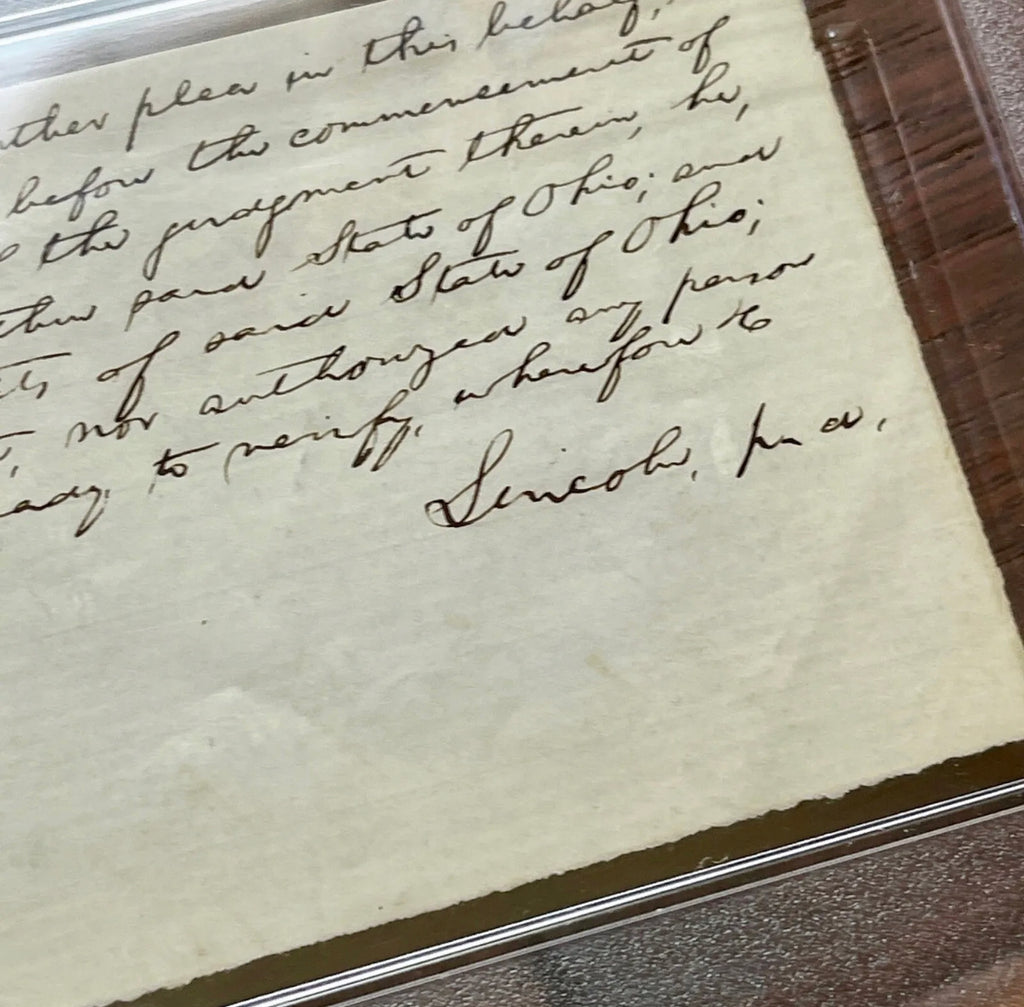 ther plea in this behalf,
before the commencement of
the judgment therein, he,
said State of Ohio; and
ts of said State of Ohio;
nor authorized any person
ady to verify, wherefore &c
Lincoln, p. d.